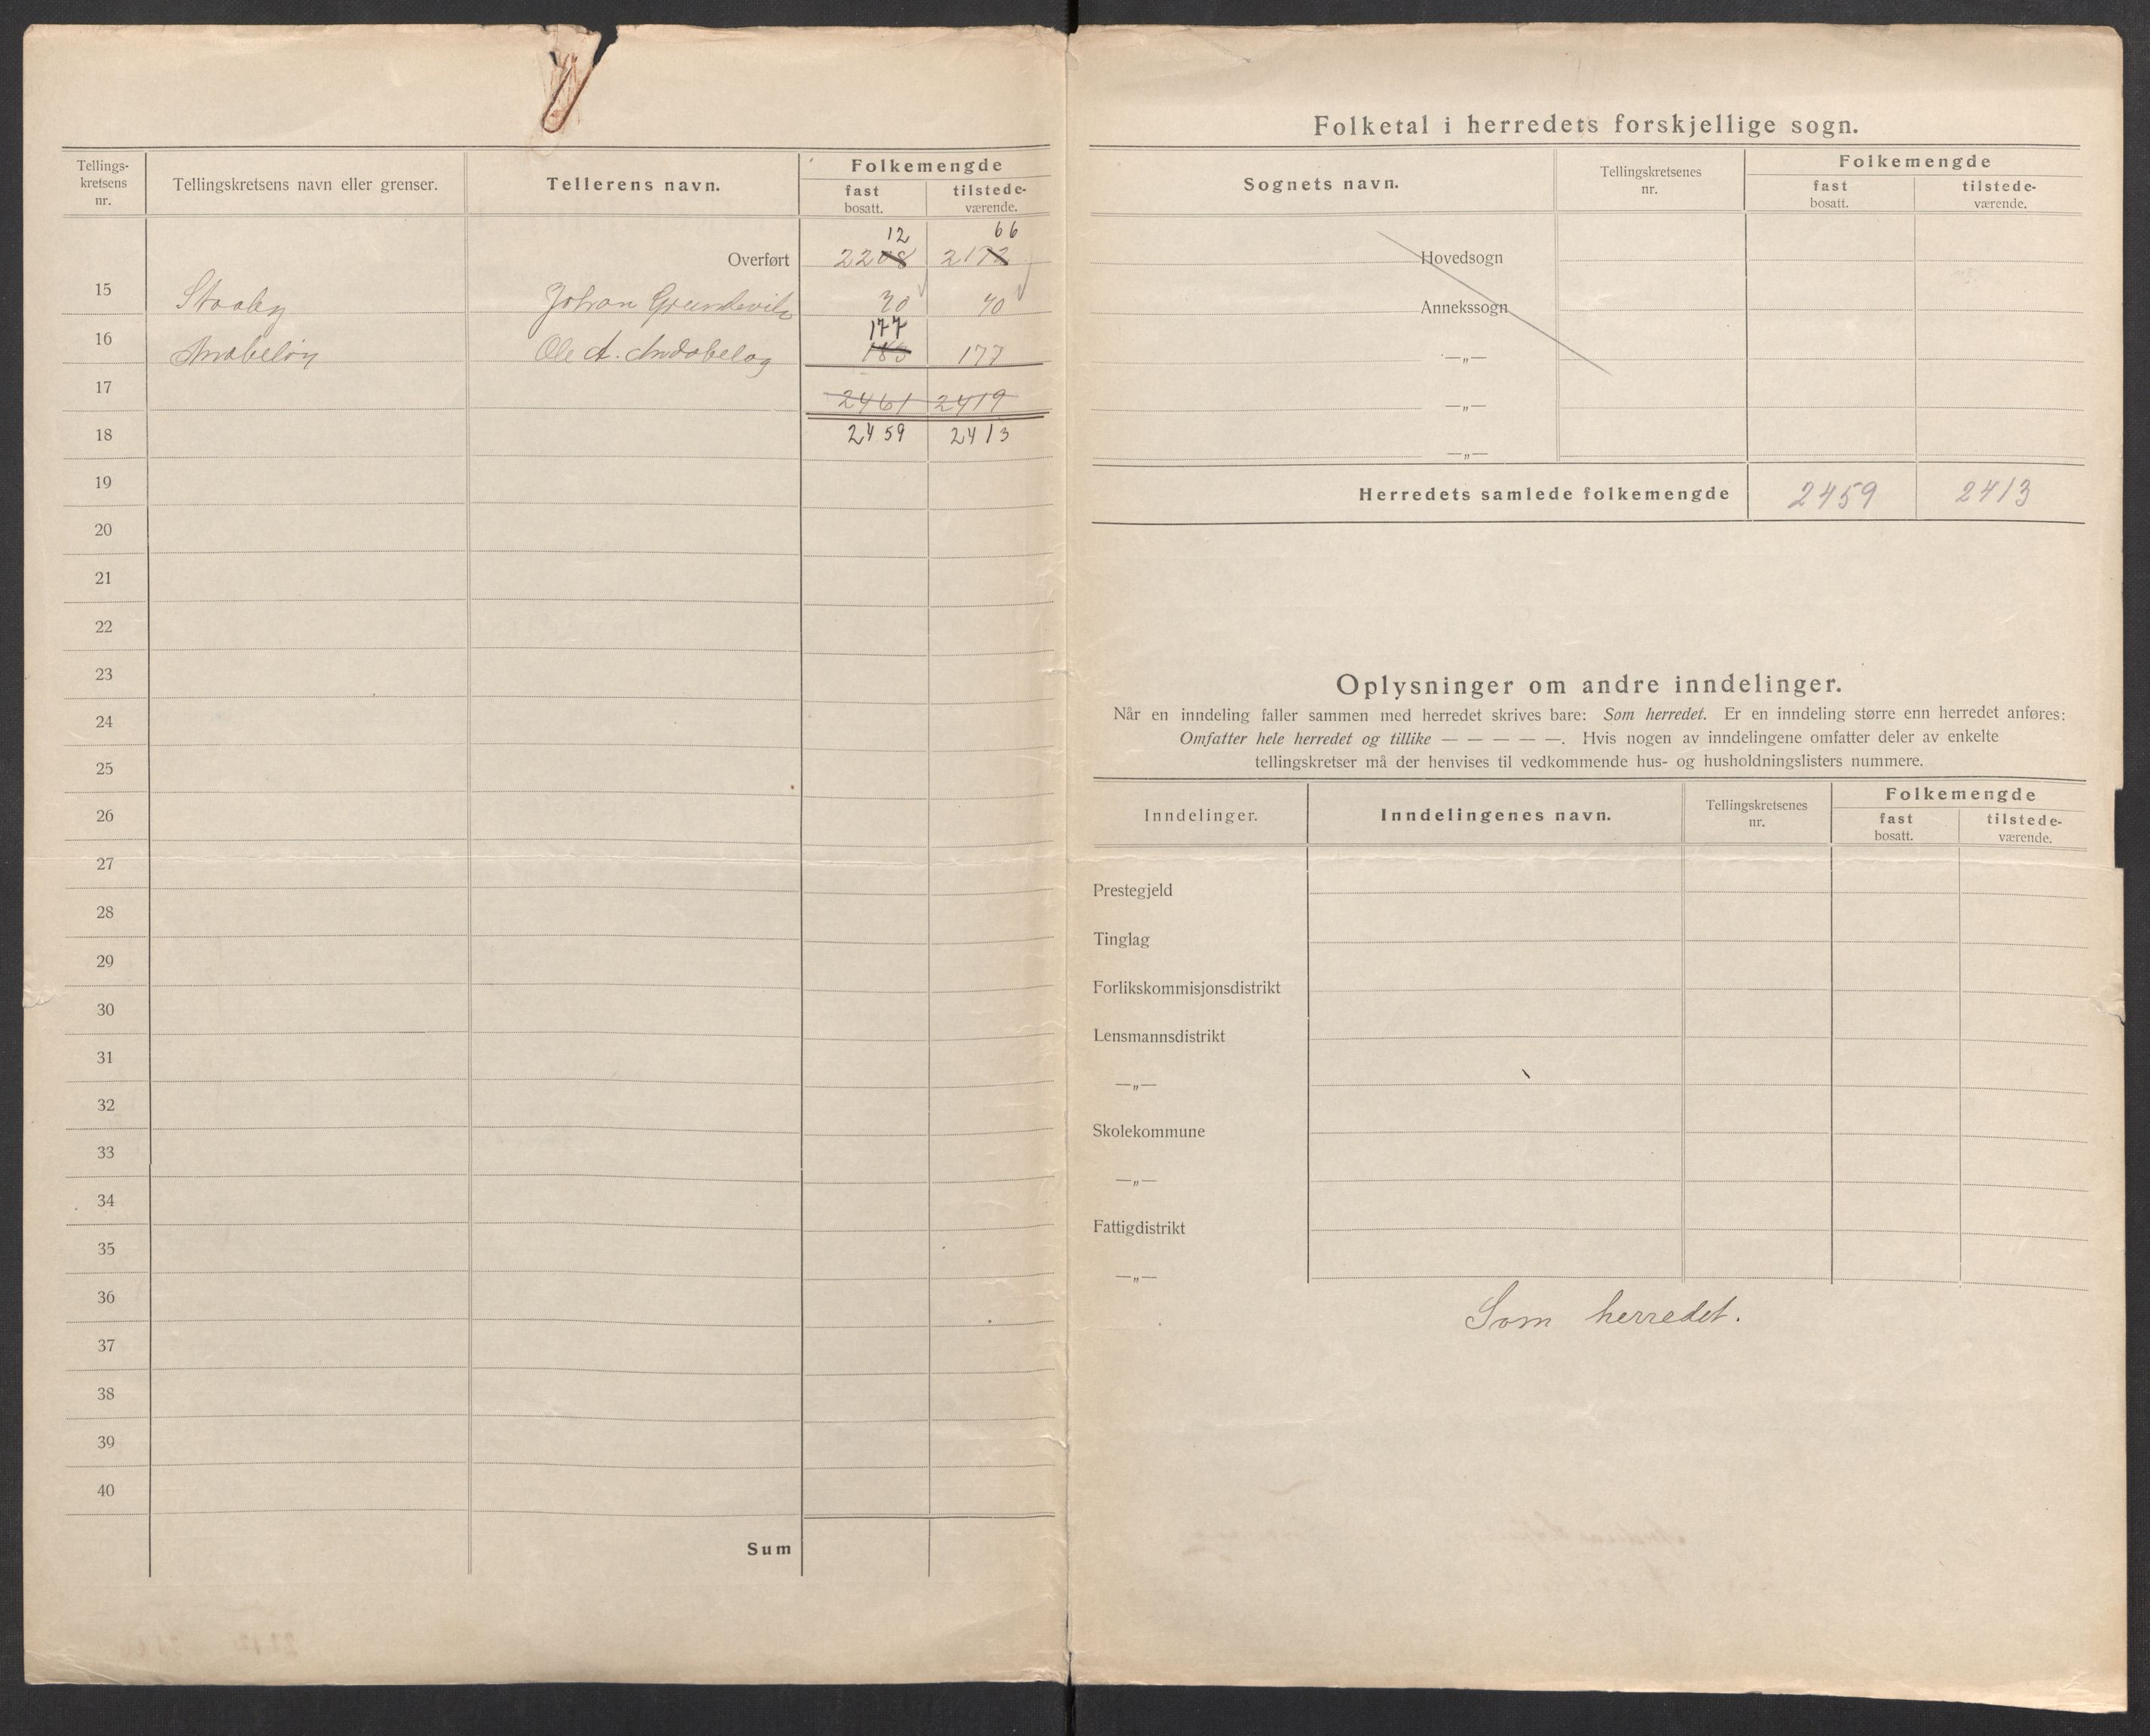 Tellings-
kretsens
nr.
Tellingskretsens navn eller grenser.
Tellerens navn.
Folkemengde
fast
bosatt.
tilstede-
værende.
12 66
Overført 2208 2172
15 Johan 70 70
177
16 Ole A. 183 177
17 2461 2419
18 2459 2413
19
20
21
22
23
24
25
26
27
28
29
30
31
32
33
34
35
36
37
38
39
40
Sum
Folketal i herredets forskjellige sogn.
Sognets navn.
Tellingskretsenes
nr.
Folkemengde
fast
bosatt.
tilstede-
værende.
Hovedsogn
Annekssogn
—„—
—„—
—„—
Herredets samlede folkemengde 2459 2413
Oplysninger om andre inndelinger.
Når en inndeling faller sammen med herredet skrives bare: Som herredet. Er en inndeling større enn herredet anføres:
Omfatter hele herredet og tillike — — — — —. Hvis nogen av inndelingene omfatter deler av enkelte
tellingskretser må der henvises til vedkommende hus- og husholdningslisters nummere.
Inndelinger.
Inndelingenes navn.
Tellingskretsenes
nr.
Folkemengde
fast
bosatt.
tilstede-
værende.
Prestegjeld
Tinglag
Forlikskommisjonsdistrikt
Lensmannsdistrikt
—„—
Skolekommune
—„—
Fattigdistrikt
—„—
Som herredet.